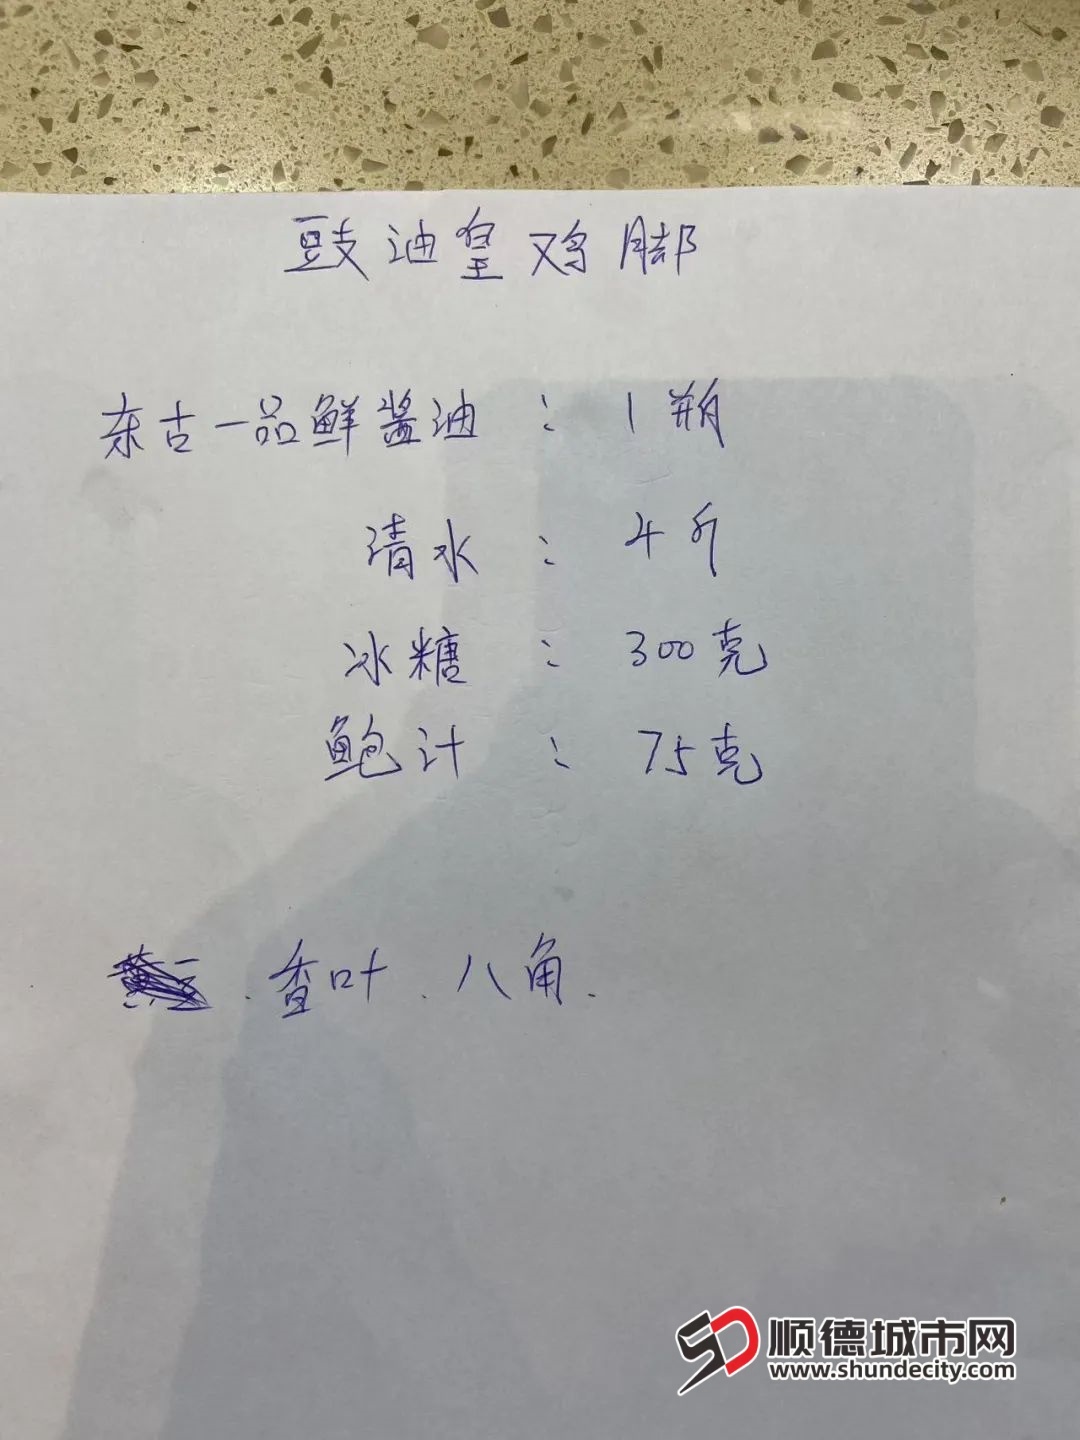 豉油皇鸡脚
东古一品鲜酱油：1瓶
清水：4斤
冰糖：300克
鲍汁：75克
香叶、八角.
顺德城市网
www.shundecity.com